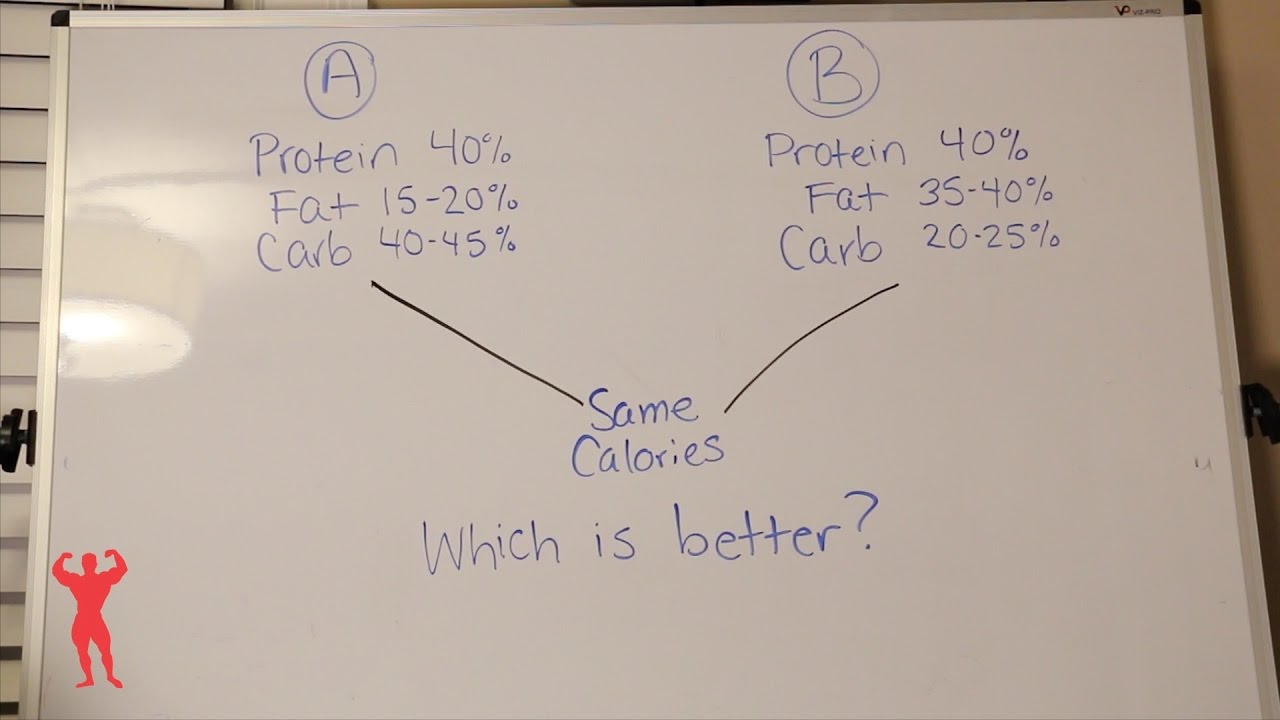 VIZ-PRO
A
Protein 40%
Fat 15-20%
Carb 40-45%
B
Protein 40%
Fat 35-40%
Carb 20-25%
Same
Calories
Which is better?